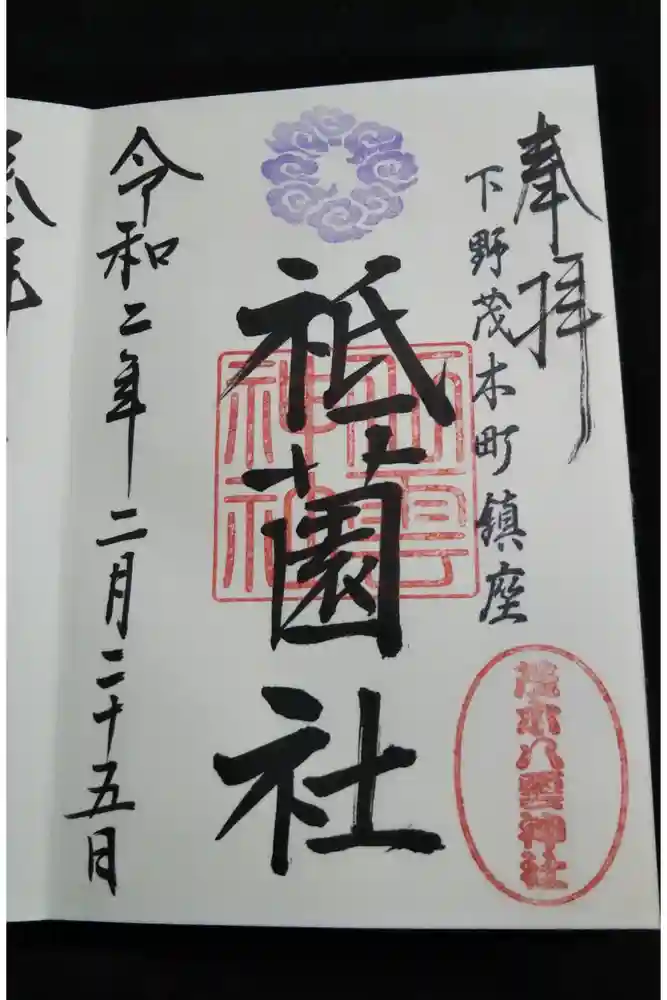 奉拝
下野茂木町鎮座
茂木八雲神社
祇薗社
八雲
神社
令和二年二月二十五日